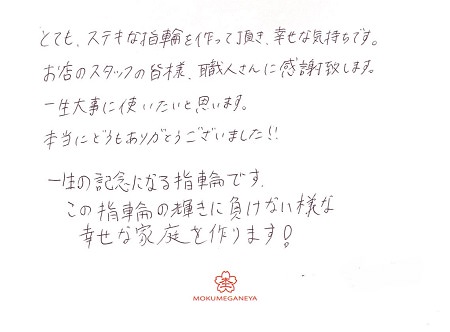 とても、ステキな指輪を作って頂き、幸せな気持ちです。
お店のスタッフの皆様、職人さんに感謝致します。
一生大事に使いたいと思います。
本当にどうもありがとうございました!!
一生の記念になる指輪です。
この指輪の輝きに負けない様な
幸せな家庭を作ります!
MOKUMEGANEYA